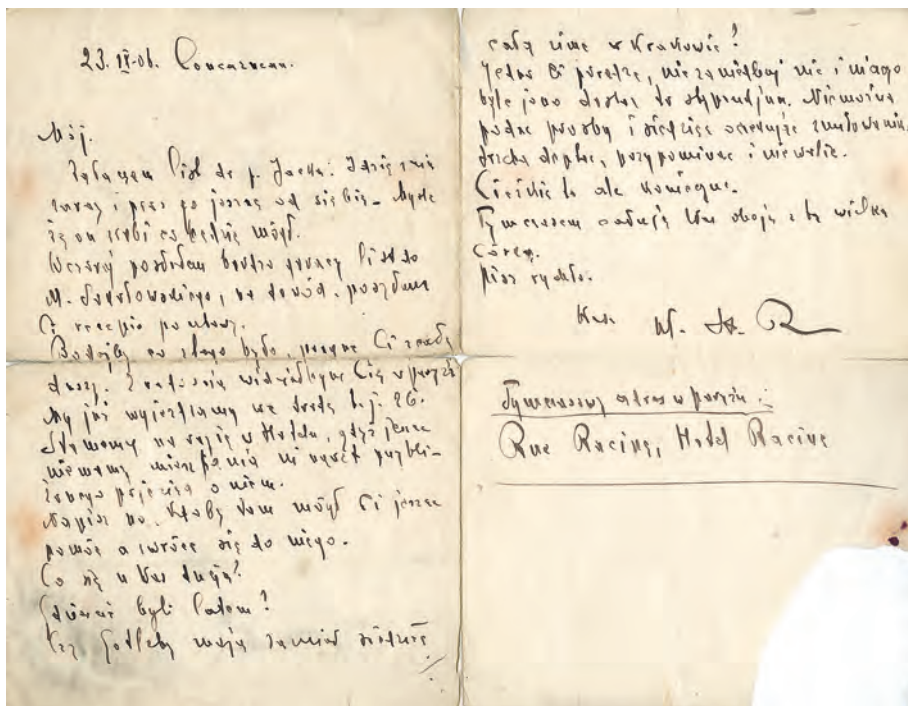 23. IX-06. Concarneau.
Mój.
list do p. Jacka:
zaraz i pisz go jeszcze od siebie –
że on zrobi co będzie mógł.
Wczoraj posłałem bardzo gorący list do
M. na dowód, posyłam
Ci recepis pocztowy.
Bodajby co z tego było, pragnę Ci z całej
duszy. Z radością widziałbym Cię w paryżu
My już wyjeżdżamy we środę t.j. 26.
Stajemy na razie w Hotelu, gdyż jeszcze
niemamy mieszkania ni nawet przybli-
żonego pojęcia o niem.
Napisz no, ktoby tam mógł Ci jeszcze
pomóc a zwrócę się do niego.
Co się u Was dzieje?
Gdzieście byli latem?
Czy Gotliby mają zamiar siedzieć
całą zimę w Krakowie?
Jedno Ci poradzę, nie zaniedbaj nic i niczego
byle jeno dostać to stypendjum. Niemożna
podać prośby i siedzieć oczekując zmiłowania,
trzeba deptać, przypominać i niewolić.
Ciężkie to ale konieczne.
Tymczasem całuję Was oboje z tą wielką
Córką.
pisz rychło.
Wasz Wł. St. R
Tymczasowy adres w paryżu:
Rue Racine, Hotel Racine